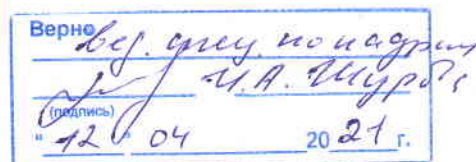 Верно вед. спец. по кадрам
И.А. Шур
(подпись)
"12" 04 2021 г.